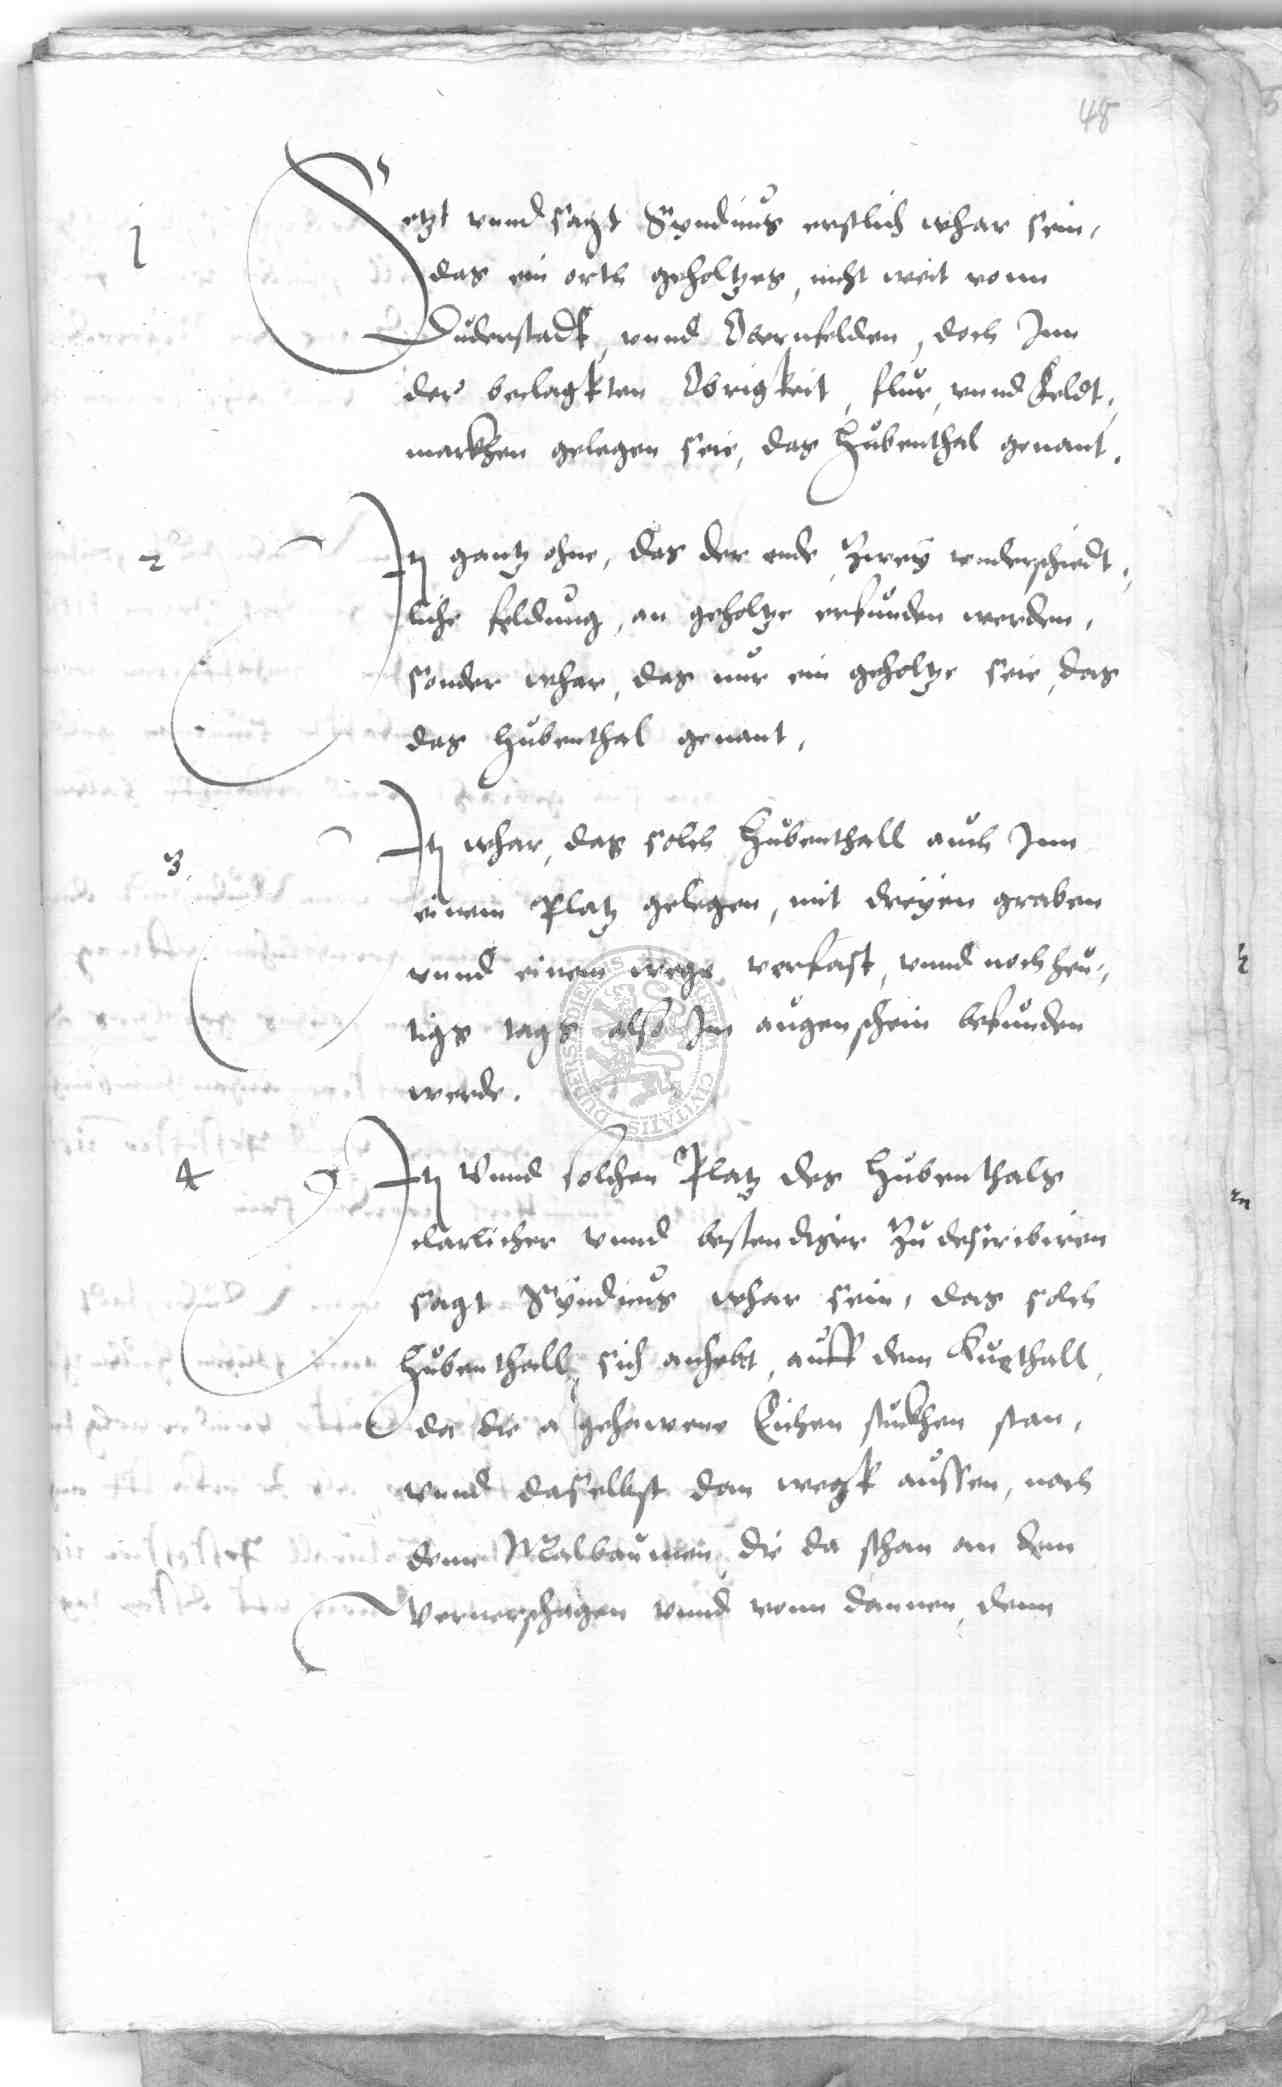 48
1
Setzt vnnd sagt Syndicus erstlich whar sein,
das ein orth geholtzes, nicht weit vonn
Duderstadt, vnnd Obernfelden, doch Inn
der beclagkten Obrigkeit, flur, vnnd Feldt,
markhen gelegen seie, das Hubenthal genant.
2
It gantz ohne, das der ende, Zwey vnderschiedt,
liche feldung, an geholtze erfunden werden,
sonder whar, das nur ein geholtze seie, das
das Hubenthal genant,
3.
It whar, das solch Hubenthall auch Inn
einem Platz gelegen, mit dreyen graben
vnnd einem wege, verfast, vnnd noch heu,
tigs tags also Im augenschein befunden
werde.
4
It Vnnd solchen Platz des Hubenthals
clarlicher vnnd bestendiger Zu describiren
sagt Syndicus whar sein, das solch
Hubenthall, sich anhebt, auff dem
da die gehawene Eichen stuckhen stan,
vnnd daselbst den wegk aussen, nach
denn Malbaumen, die da sthan an dem
Vernershagen vnnd vonn dannen, denn
SIGILLUM CIVITATIS DUDERSTODIENSIS